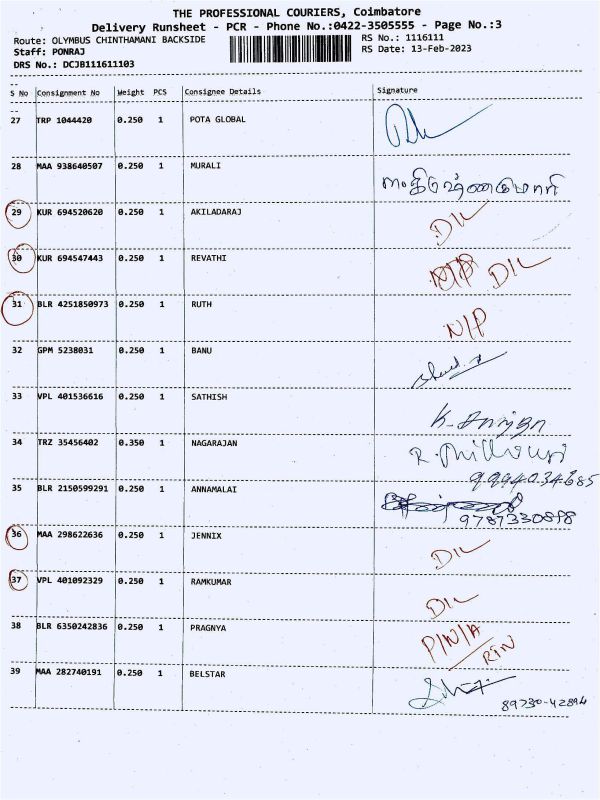 THE PROFESSIONAL COURIERS, Coimbatore
Delivery Runsheet - PCR - Phone No.:0422-3505555 - Page No.:3
Route: OLYMBUS CHINTHAMANI BACKSIDE RS No.: 1116111
Staff: PONRAJ RS Date: 13-Feb-2023
DRS No.: DCJB111611103
S No Consignment No Weight PCS Consignee Details Signature
27 TRP 1044420 0.250 1 POTA GLOBAL
28 MAA 938640507 0.250 1 MURALI
29 KUR 694520620 0.250 1 AKILADARAJ D/L
30 KUR 694547443 0.250 1 REVATHI D/L
31 BLR 4251850973 0.250 1 RUTH N/P
32 GPM 5238031 0.250 1 BANU
33 VPL 401536616 0.250 1 SATHISH K.
34 TRZ 35456402 0.350 1 NAGARAJAN R.
9994034685
35 BLR 2150599291 0.250 1 ANNAMALAI
9787330898
36 MAA 298622636 0.250 1 JENNIX D/L
37 VPL 401092329 0.250 1 RAMKUMAR D/L
38 BLR 6350242836 0.250 1 PRAGNYA P/N/A
RTN
39 MAA 282740191 0.250 1 BELSTAR
89730-42894